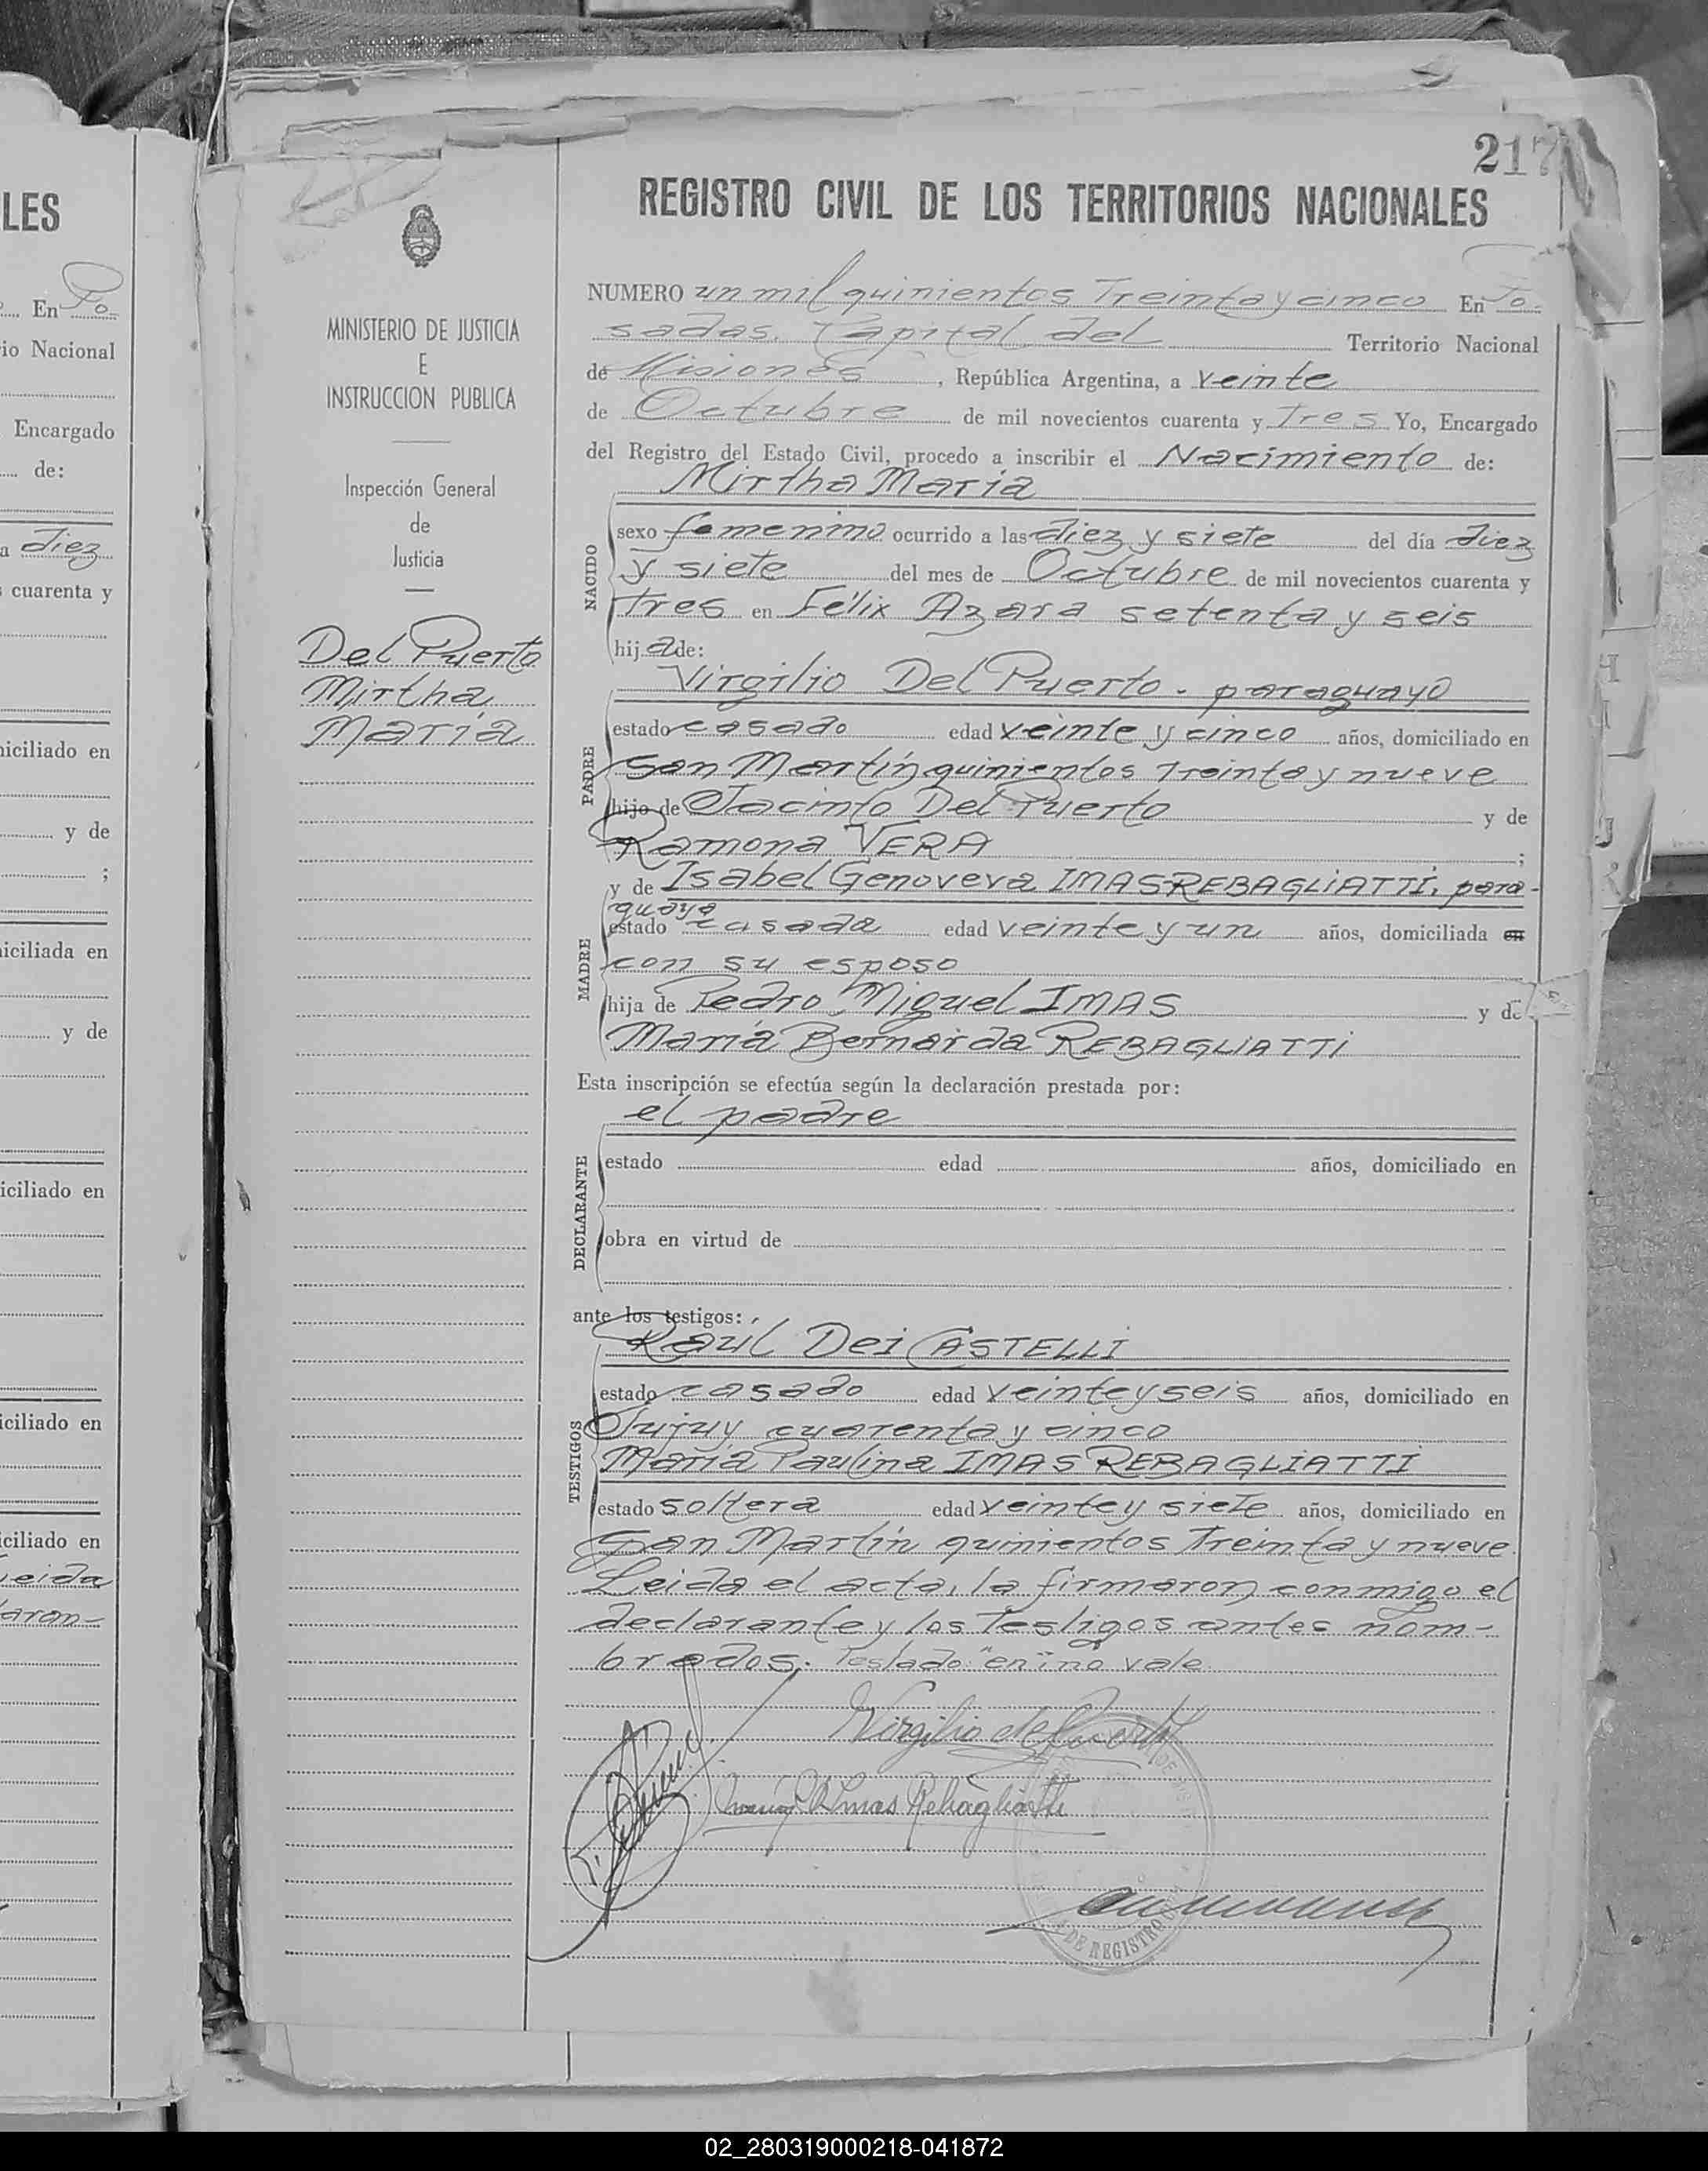 217
REGISTRO CIVIL DE LOS TERRITORIOS NACIONALES
MINISTERIO DE JUSTICIA
E
INSTRUCCION PUBLICA
Inspección General
de
Justicia
Del Puerto
Mirtha
María
NUMERO un mil quinientos Treinta y cinco En Po-
sadas. Capital del Territorio Nacional
de Misiones, República Argentina, a veinte
de Octubre de mil novecientos cuarenta y Tres Yo, Encargado
del Registro del Estado Civil, procedo a inscribir el Nacimiento de:
Mirtha María
NACIDO
sexo femenino ocurrido a las diez y siete del día diez
y siete del mes de Octubre de mil novecientos cuarenta y
Tres en Félix Azara setenta y seis
hija de:
Virgilio Del Puerto. paraguayo
PADRE
estado casado edad veinte y cinco años, domiciliado en
San Martín quinientos Treinta y nueve
hijo de Jacinto Del Puerto y de
Ramona VERA ;
MADRE
y de Isabel Genoveva IMAS REBAGLIATTI. para-
guaya
estado casada edad veinte y un años, domiciliada en
con su esposo
hija de Pedro Miguel IMAS y de
María Bernarda REBAGLIATTI
Esta inscripción se efectúa según la declaración prestada por:
el padre
DECLARANTE
estado edad años, domiciliado en
obra en virtud de
ante los testigos:
Raúl Dei CASTELLI
TESTIGOS
estado casado edad veinte y seis años, domiciliado en
Jujuy cuarenta y cinco
María Paulina IMAS REBAGLIATTI
estado soltera edad veinte y siete años, domiciliado en
San Martín quinientos Treinta y nueve
Leida el acta, la firmaron conmigo el
declarante y los Testigos antes nom-
brados. Testado "en" no vale
Virgilio del Puerto
María P. Imas Rebagliatti
DE REGISTRO
LES
En Po-
io Nacional
Encargado
de:
a diez
cuarenta y
niciliado en
y de
;
niciliada en
y de
iciliado en
iciliado en
iciliado en
Leida
laron-
02_280319000218-041872